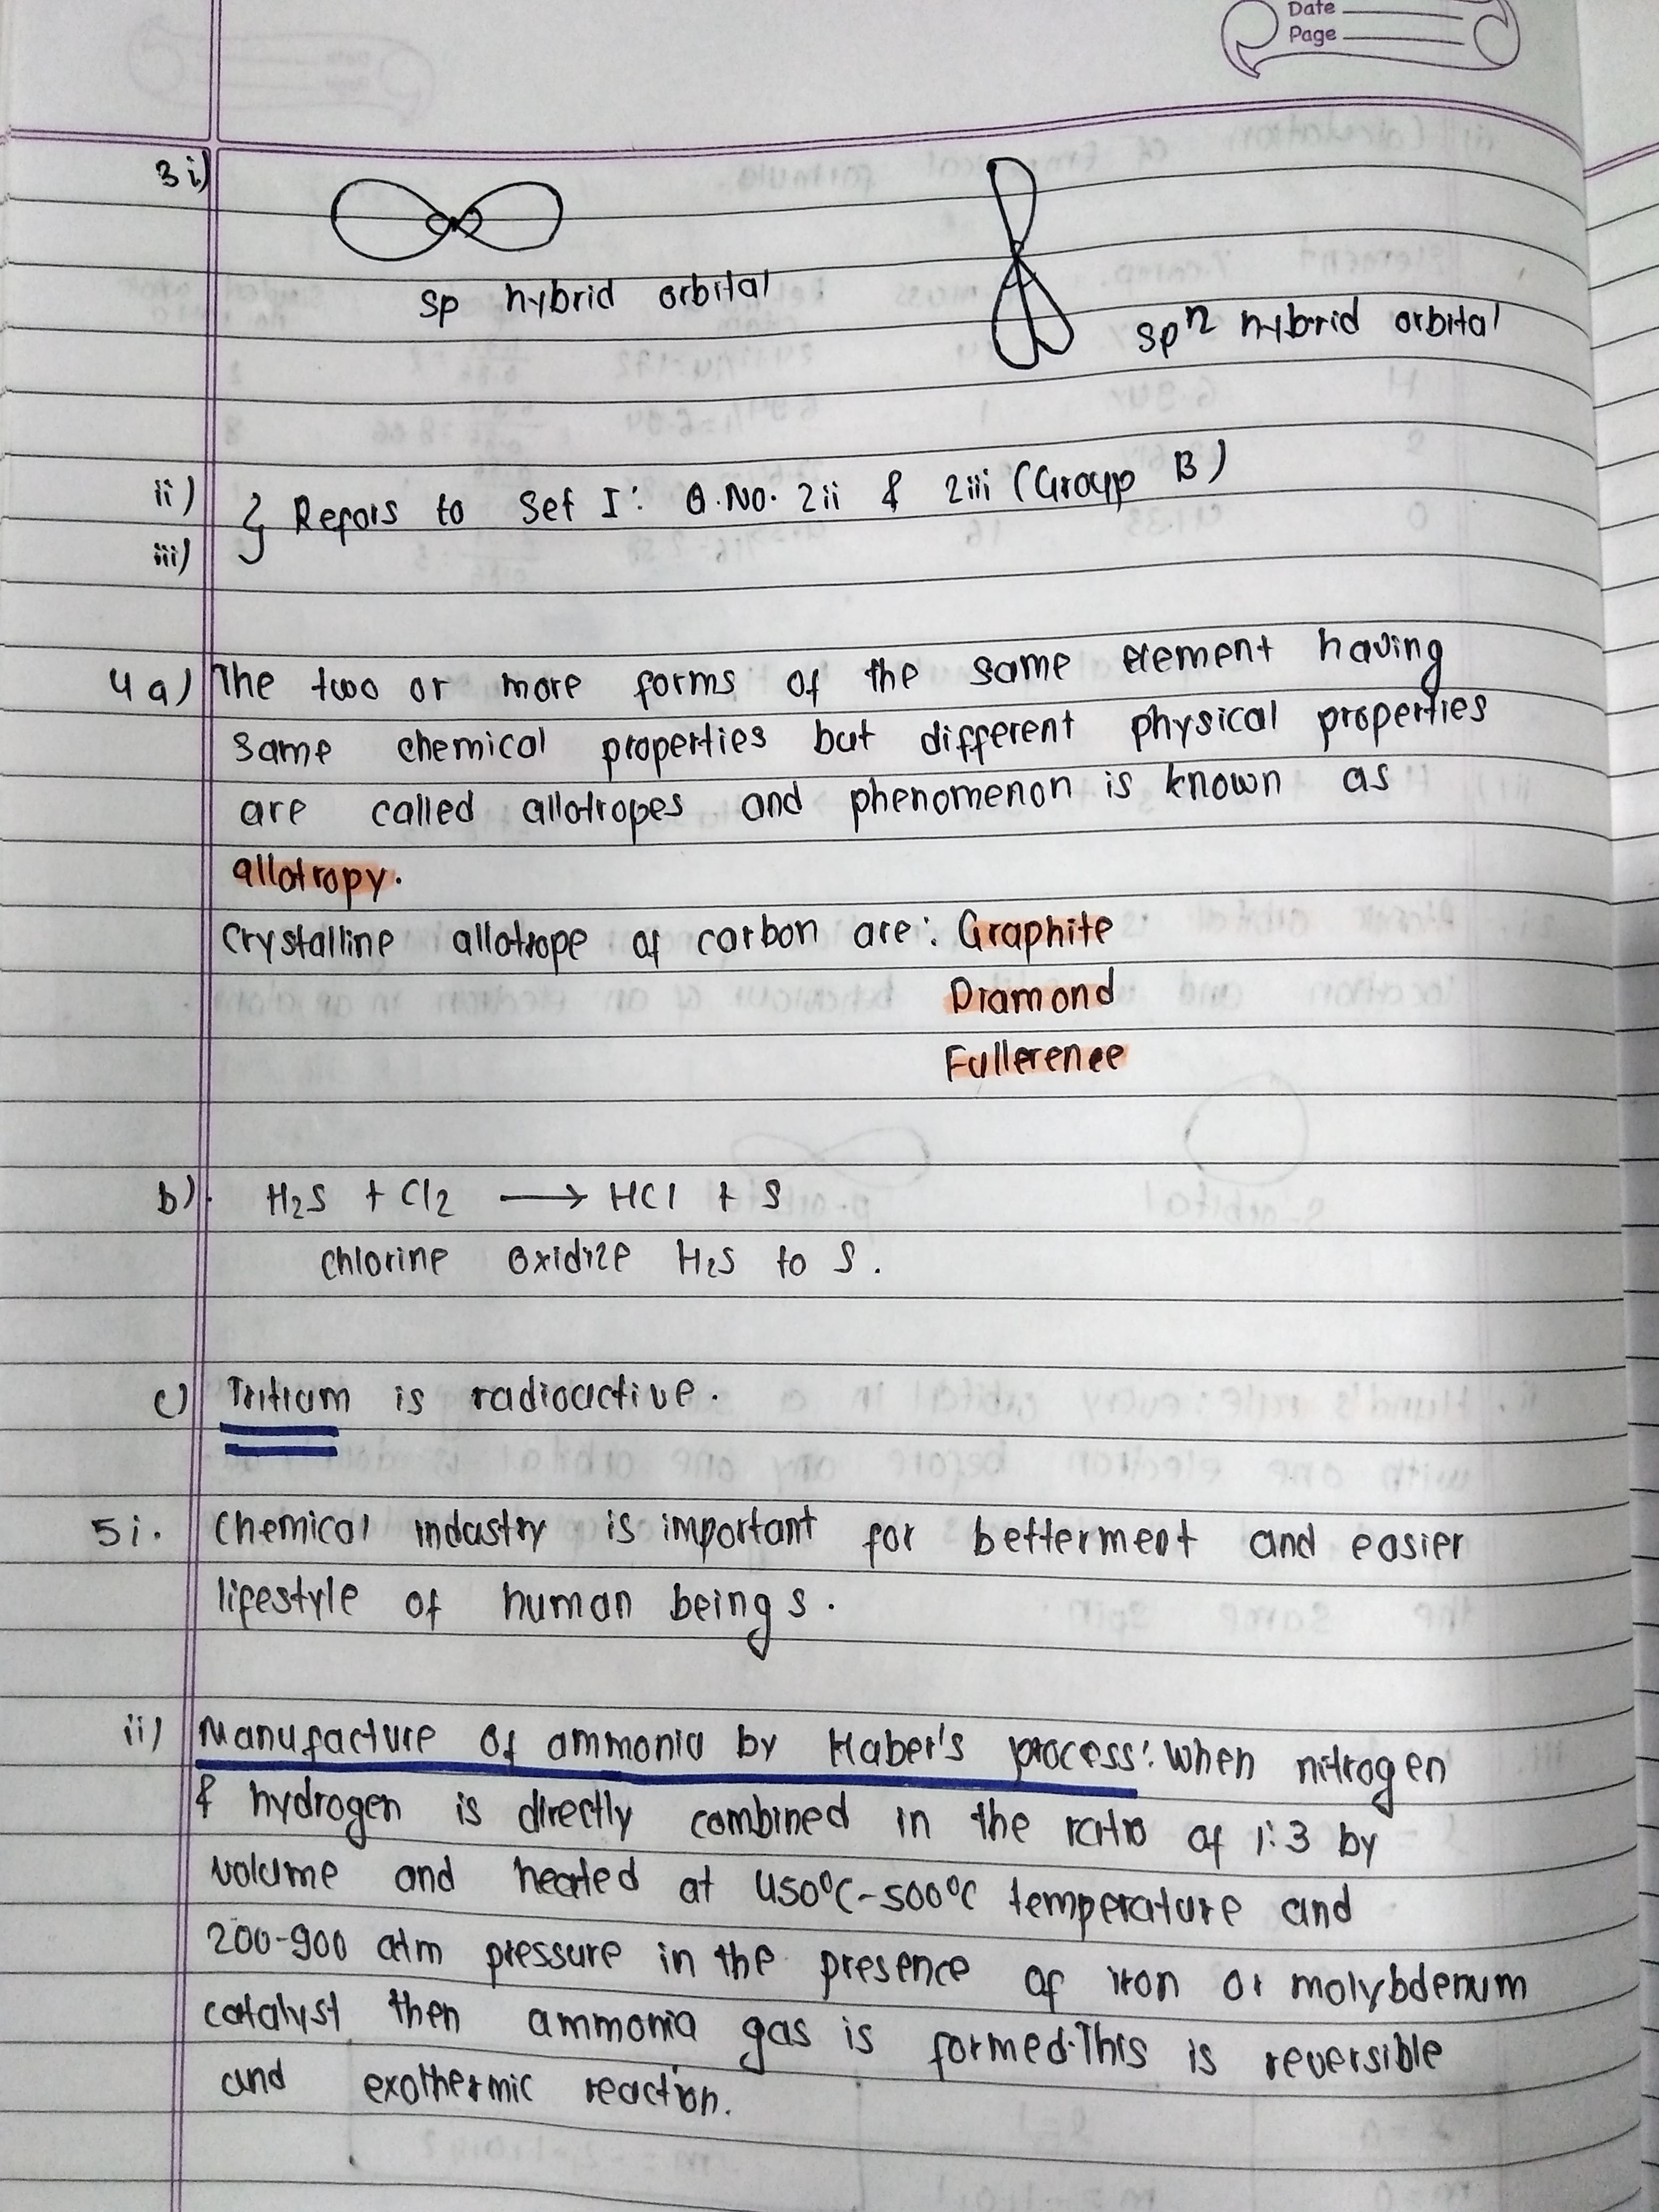 Date
Page
3 i)
sp hybrid orbital
sp² hybrid orbital
ii)
iii)
} Refers to Set I: Q.No. 2ii & 2iii (Group B)
4 a) The two or more forms of the same element having
same chemical properties but different physical properties
are called allotropes and phenomenon is known as
allotropy.
Crystalline allotrope of carbon are: Graphite
Diamond
Fullerenee
b). H₂S + Cl₂ ⟶ HCl + S
chlorine oxidize H₂S to S.
c) Tritium is radioactive.
5i. Chemical industry is important for betterment and easier
lifestyle of human beings.
ii) Manufacture of ammonia by Haber's process: When nitrogen
& hydrogen is directly combined in the ratio of 1:3 by
volume and heated at 450°C-500°C temperature and
200-900 atm pressure in the presence of iron or molybdenum
catalyst then ammonia gas is formed. This is reversible
and exothermic reaction.